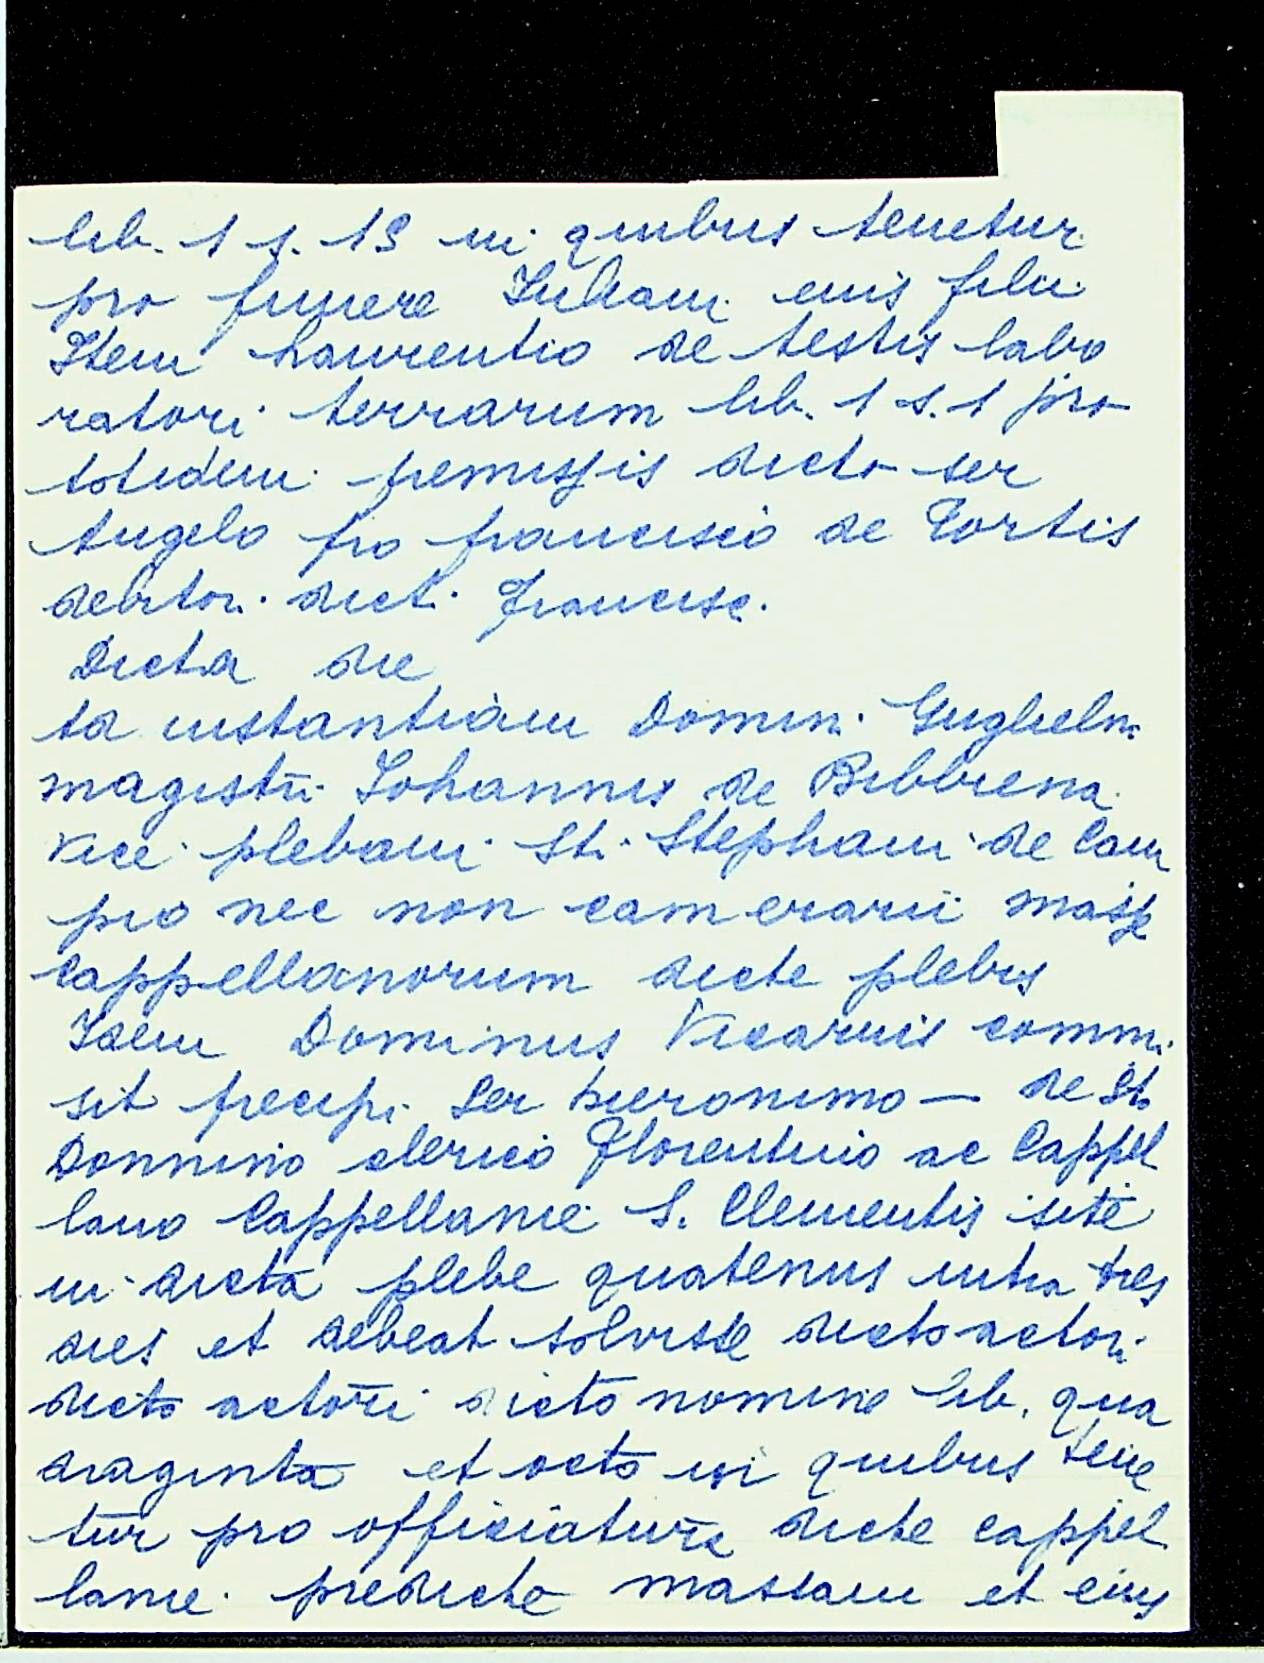 lib. 1 s. 19 in quibus tenetur
pro funere Juliani eius filii
Item Laurentio de testis labo
ratori terrarum lib. 1 s. 1 pro
totidem promissis dicto ser
Angelo pro francisco de Tortis
debitor. dict. Francisc.
Dicta die
ta instantiam Domin. Guglielm.
magistri Johannis de Bibbiena
vice plebani St. Stephani de Cam
pio nec non camerarii
cappellanorum dicte plebis
Idem Dominus Vicarius commi
sit precipi Ser hieronimo — de St.
Donnino clerico Florentino ac Cappel
lano Cappellanie S. Clementis site
in dicta plebe quatenus intra tres
dies et debeat solvisse dicto actori
dicto actori dicto nomine lib. qua
draginta et octo in quibus tene
tur pro officiatura dicte cappel
lanie predicte massam et eius